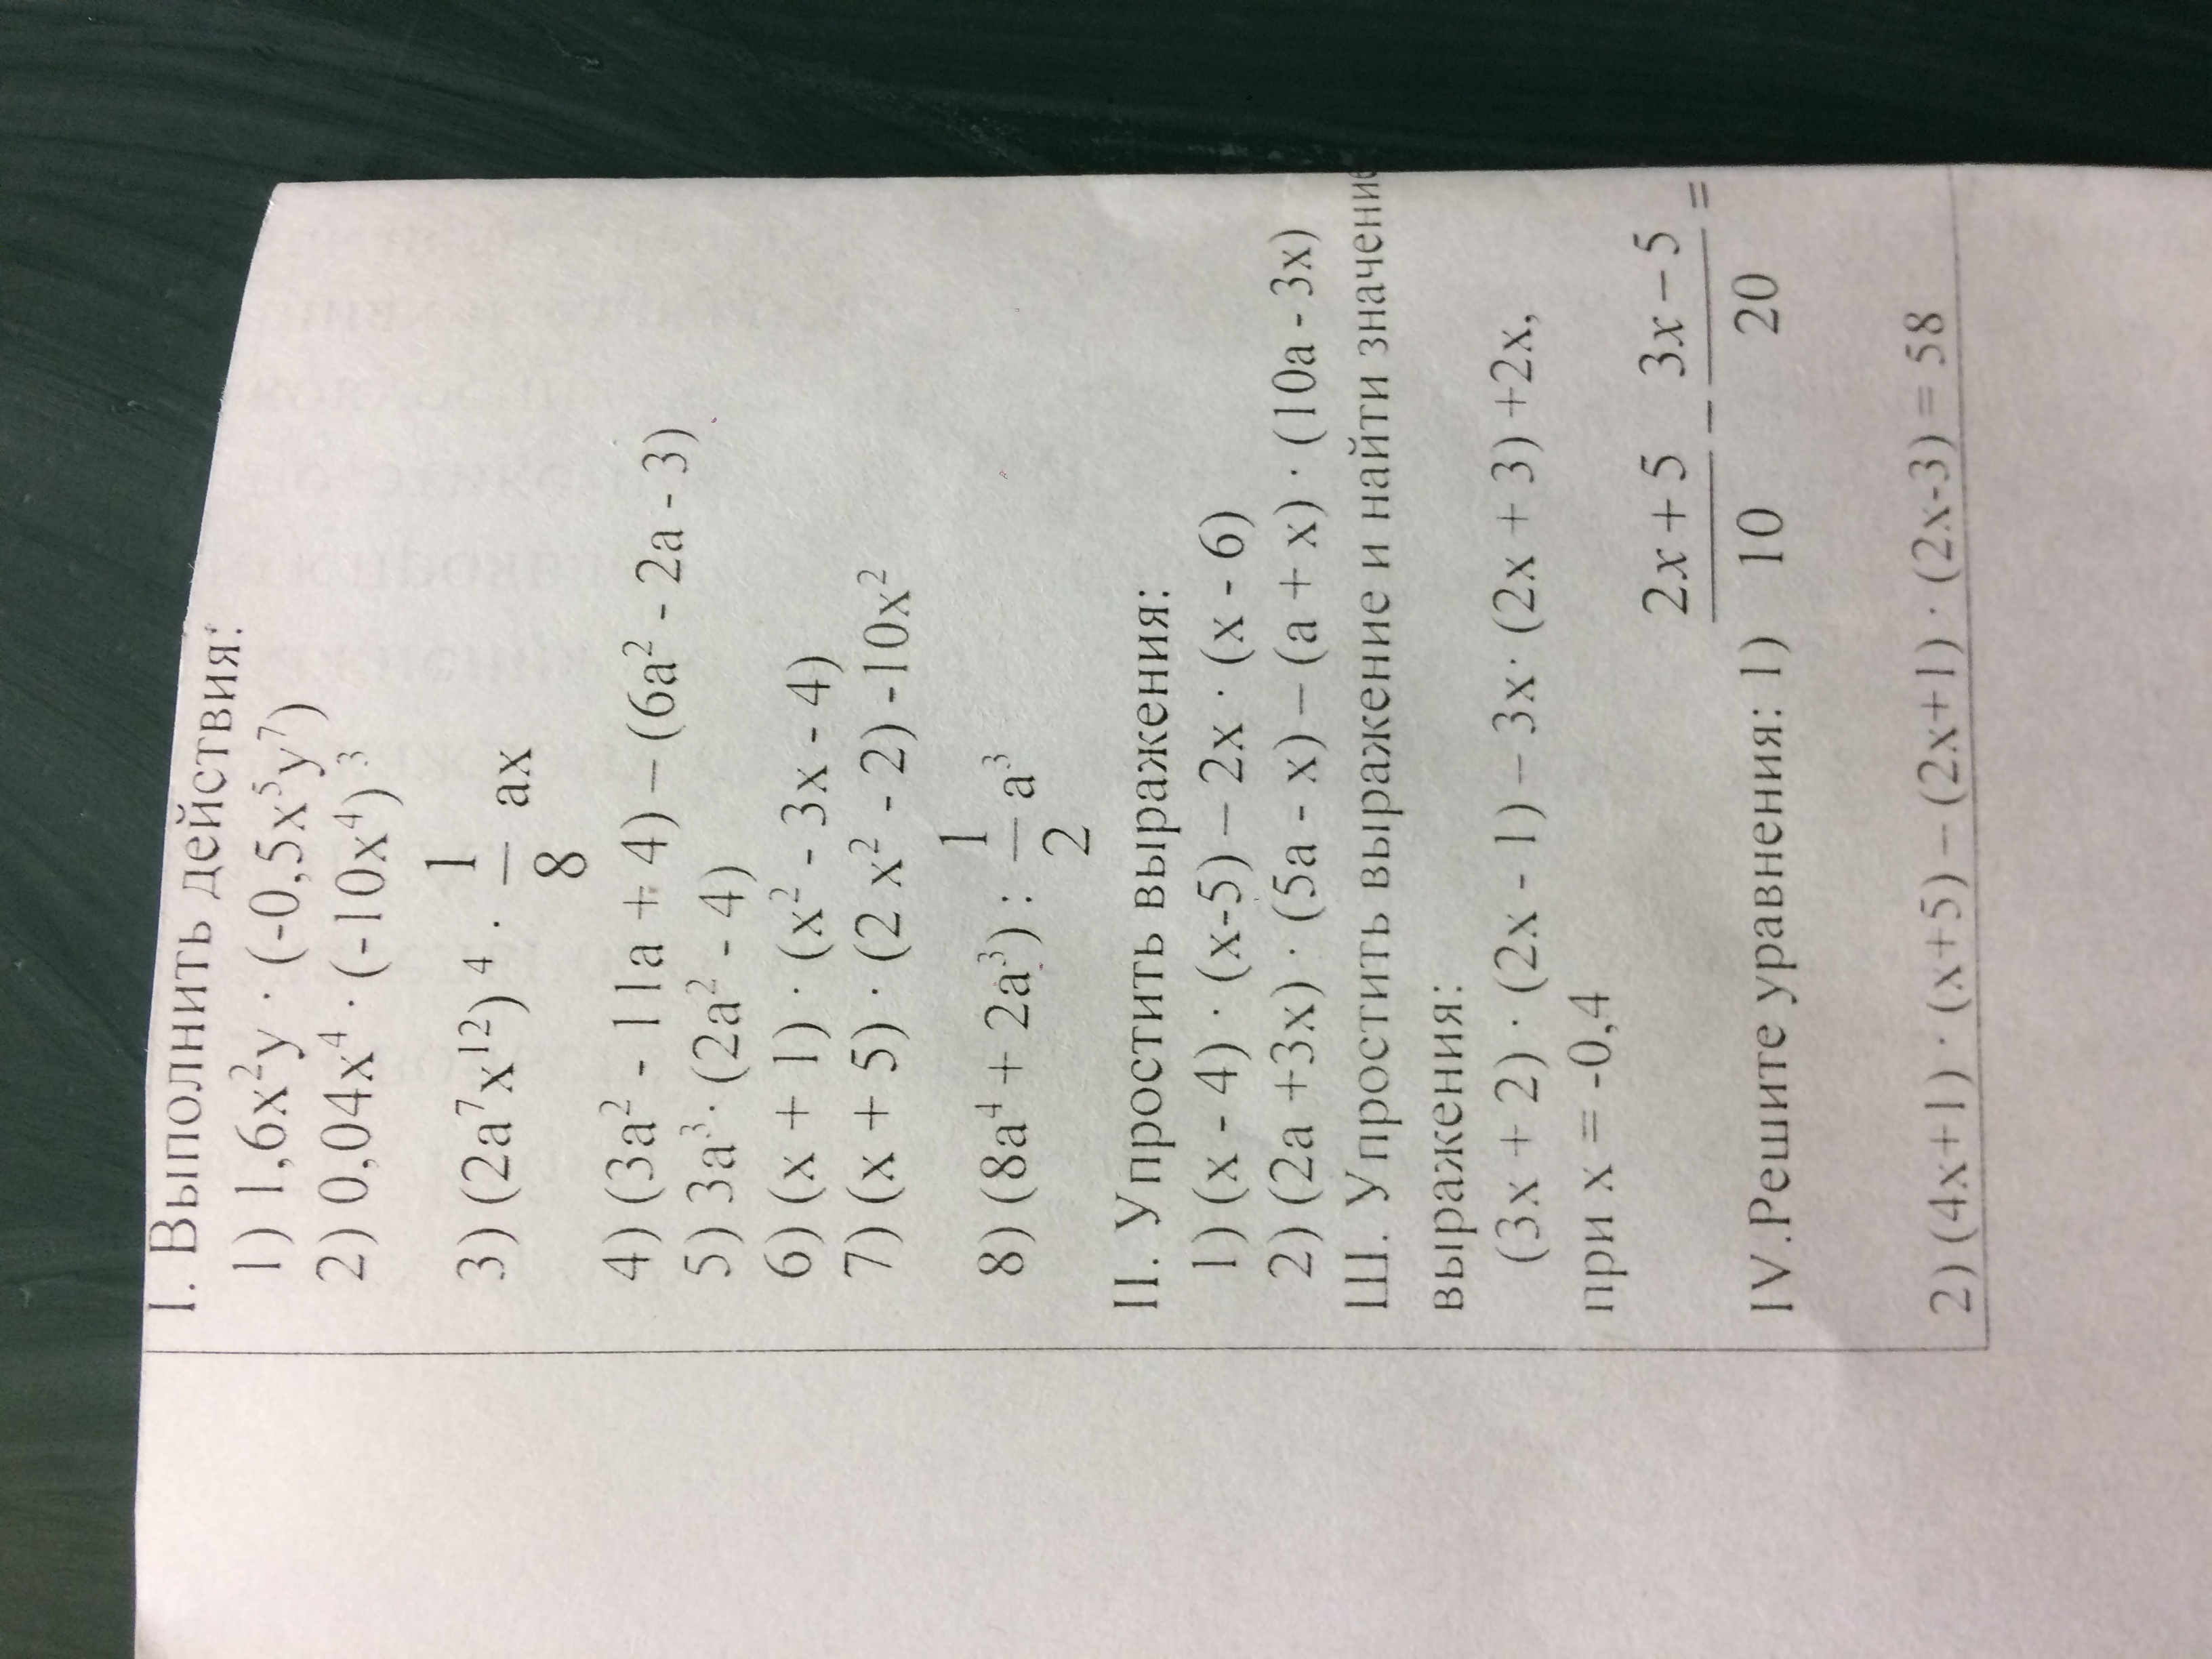 I. Выполнить действия:
1) 1,6x²y · (-0,5x⁵y⁷)
2) 0,04x⁴ · (-10x⁴)³
3) (2a⁷x¹²)⁴ · 1/8 ax
4) (3a² - 11a + 4) – (6a² - 2a - 3)
5) 3a³· (2a² - 4)
6) (x + 1) · (x² - 3x - 4)
7) (x + 5) · (2 x² - 2) -10x²
8) (8a⁴ + 2a³) : 1/2 a³
II. Упростить выражения:
1) (x - 4) · (x-5) – 2x · (x - 6)
2) (2a +3x) · (5a - x) – (a + x) · (10a - 3x)
Ш. Упростить выражение и найти значение
выражения:
(3x + 2) · (2x - 1) – 3x· (2x + 3) +2x,
при x = -0,4
IV.Решите уравнения: 1) (2x + 5)/10 – (3x – 5)/20 =
2) (4x+1) · (x+5) – (2x+1) · (2x-3) = 58